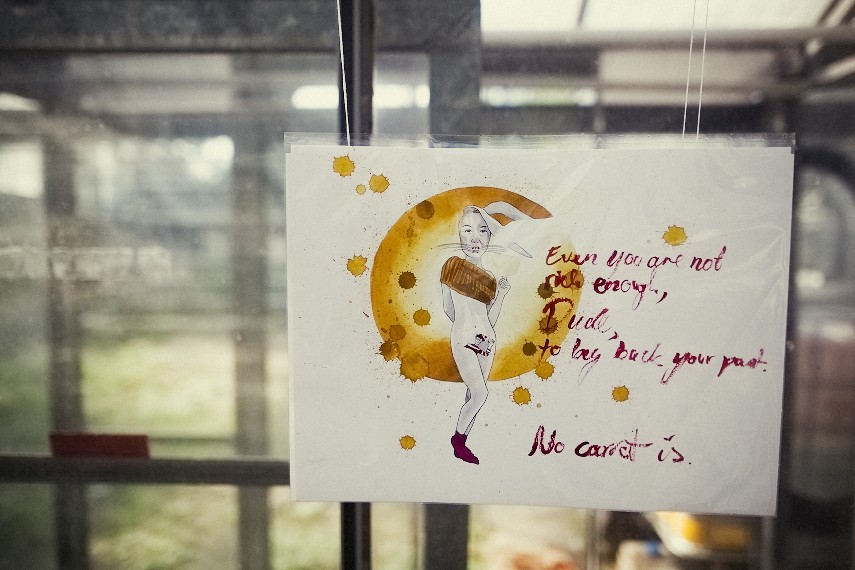 Even you are not
rich enough,
Dude,
to lay back your past.
No carrot is.